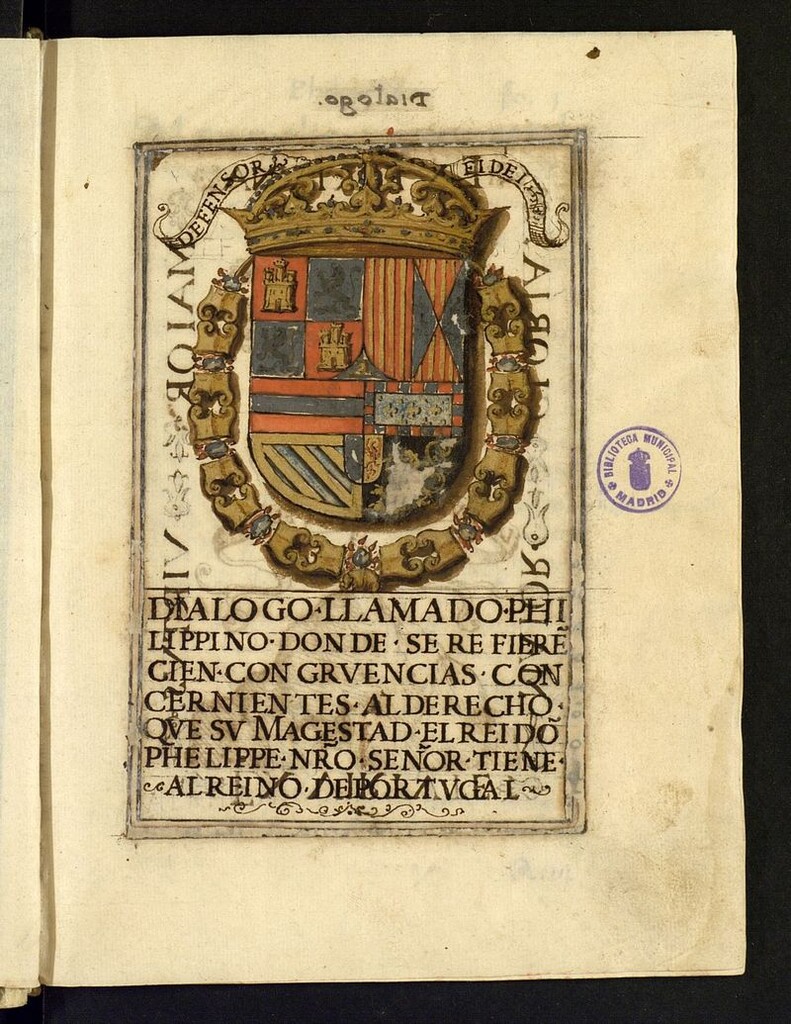 Dialogo.
DEFENSOR FIDEI
DIALOGO·LLAMADO·PHI
LIPPINO·DONDE·SE REFIERẼ
CIEN·CONGRVENCIAS·CON
CERNIENTES·ALDERECHO·
QVE SV MAGESTAD·ELREIDÕ
PHELIPPE·NRÕ·SEÑOR·TIENE·
ALREINO·DEPORTVGAL
BIBLIOTECA MUNICIPAL
MADRID